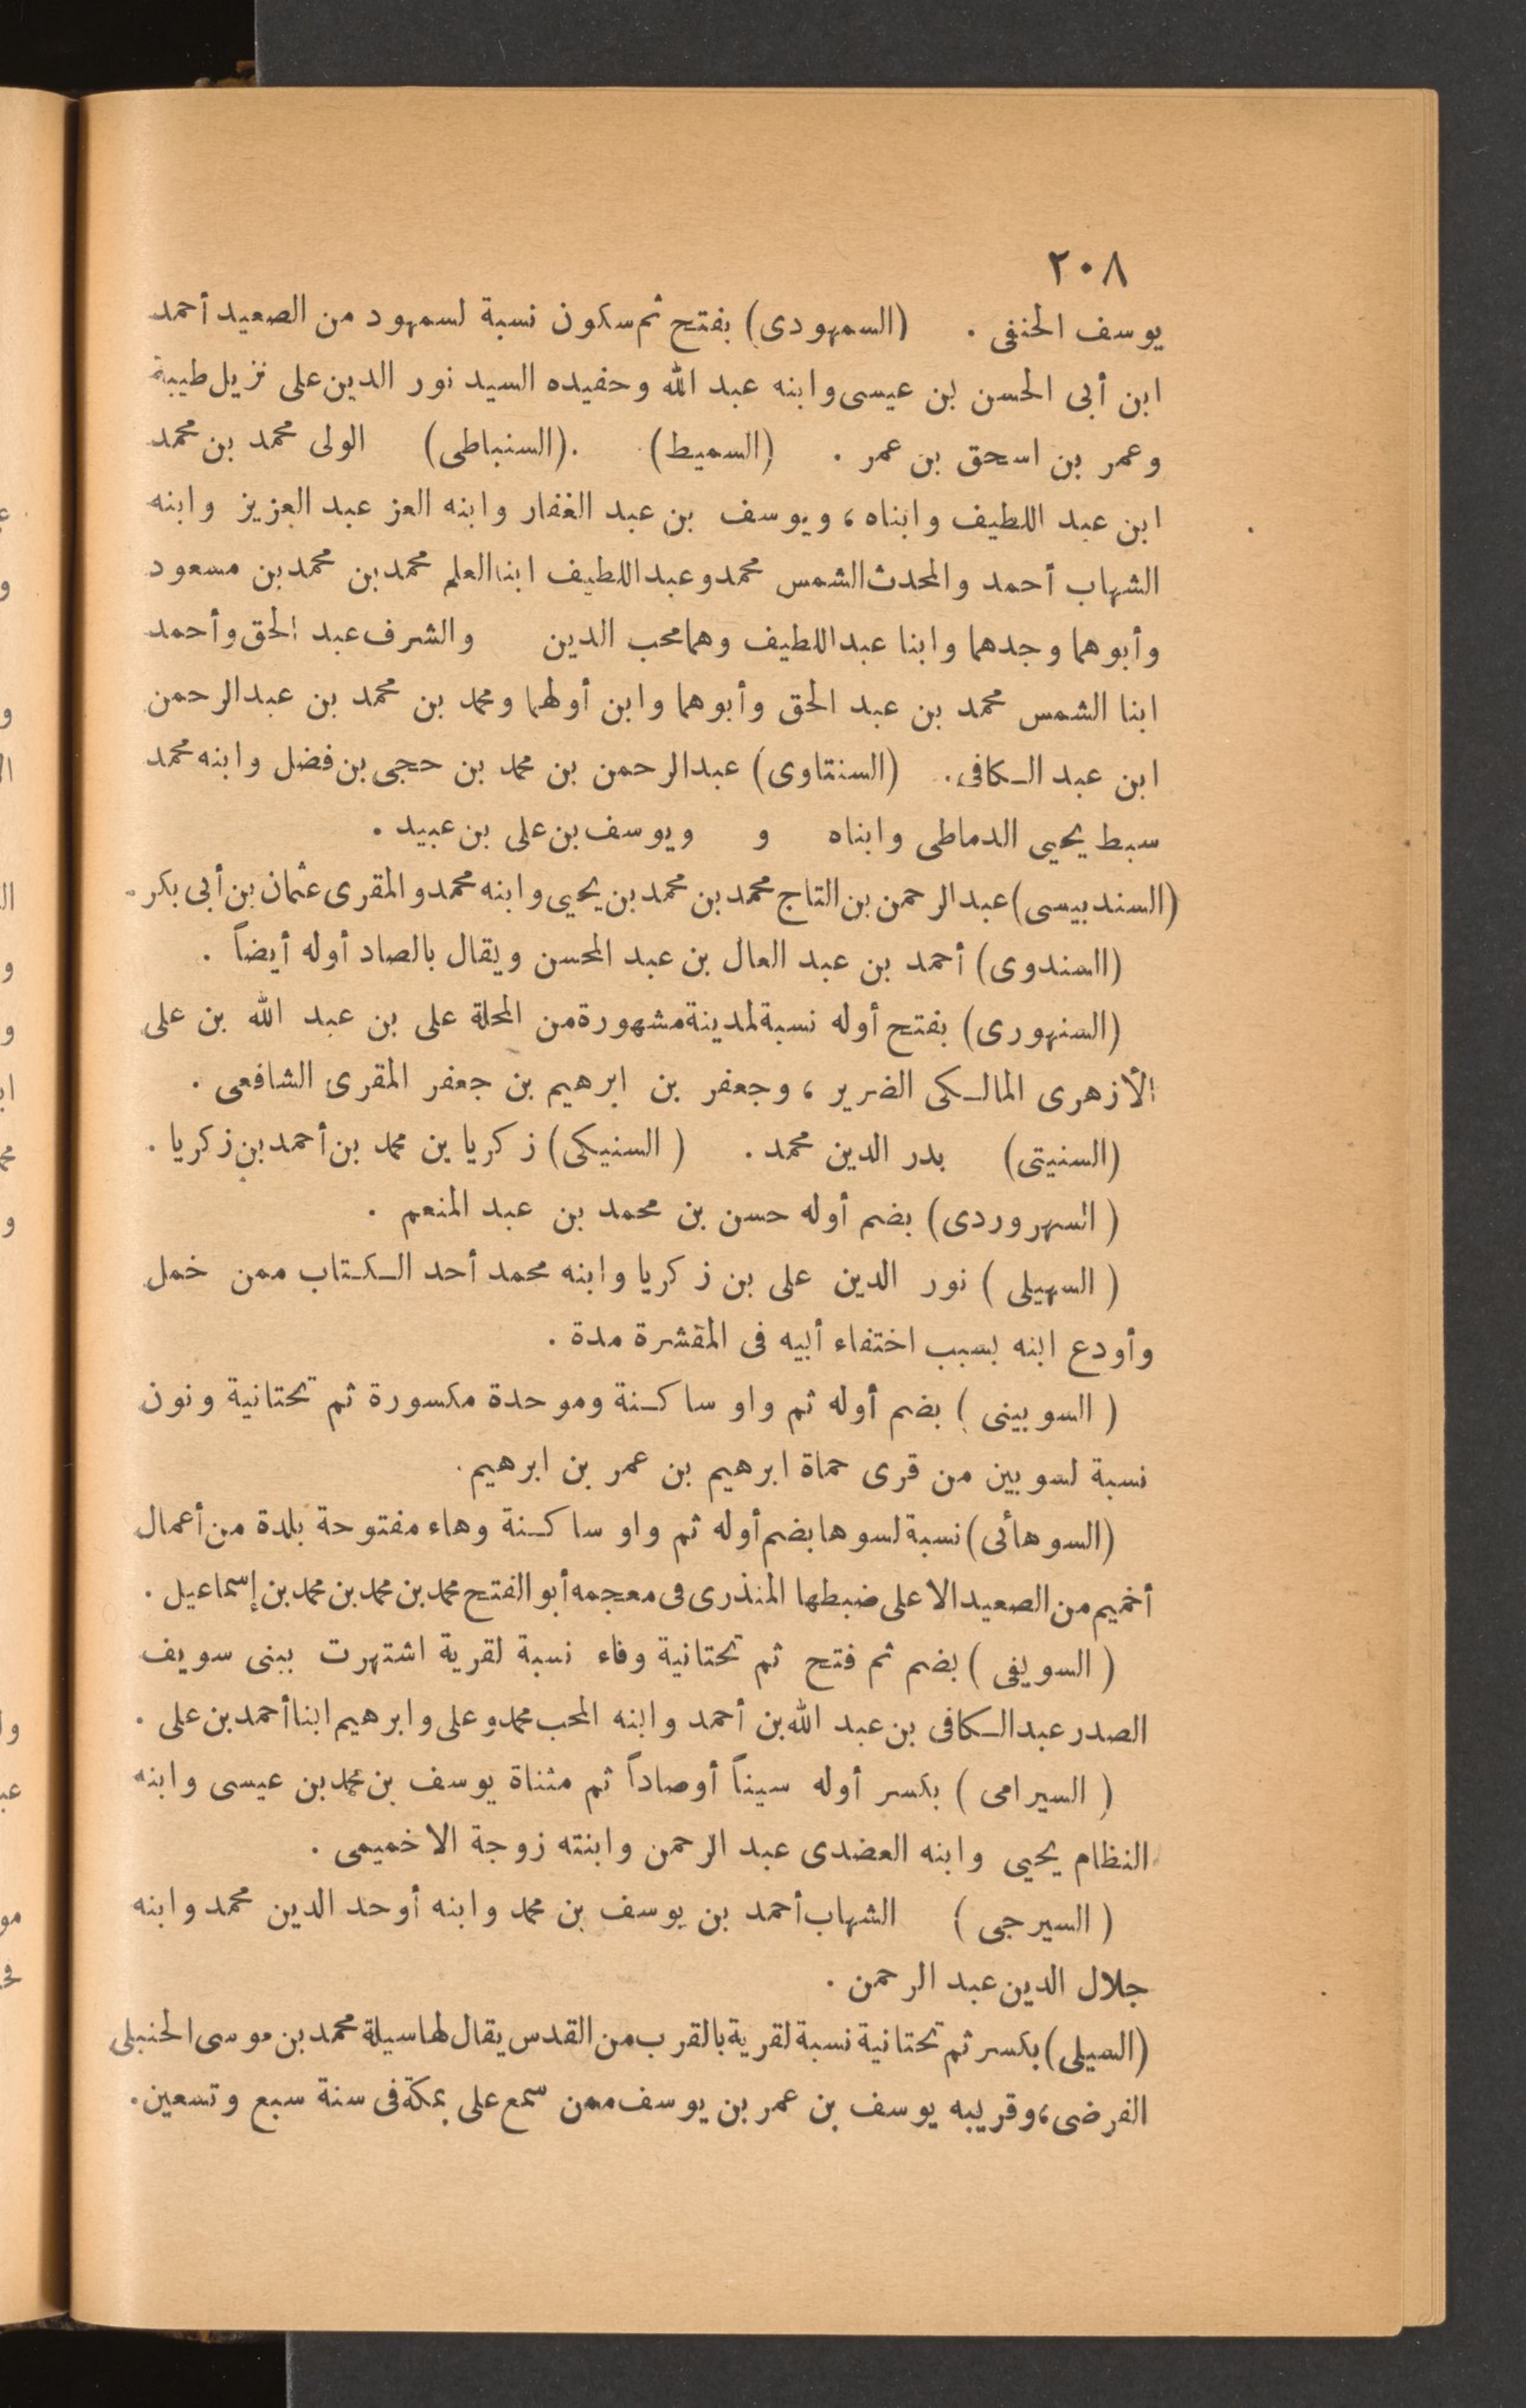 ٢٠٨
يوسف الحنفى . (السمهودى) بفتح ثم سكون نسبة لسمهود من الصعيد أحمد
ابن أبى الحسن بن عيسى وابنه عبد الله وحفيده السيد نور الدين على نزيل طيبة
وعمر بن اسحق بن عمر . (السميط) . (السنباطى) الولى محمد بن محمد
ابن عبد اللطيف وابناه ، ويوسف بن عبد الغفار وابنه العز عبد العزيز وابنه
الشهاب أحمد والمحدث الشمس محمد وعبد اللطيف ابنا العلم محمد بن محمد بن مسعود
وأبوهما وجدهما وابنا عبد اللطيف وهما محب الدين والشرف عبد الحق وأحمد
ابنا الشمس محمد بن عبد الحق وأبوهما وابن أولهما ومحمد بن محمد بن عبد الرحمن
ابن عبد الكافى . (السنتاوى) عبد الرحمن بن محمد بن حجى بن فضل وابنه محمد
سبط يحيى الدماطى وابناه و ويوسف بن على بن عبيد .
(السندبيسى) عبد الرحمن بن التاج محمد بن محمد بن يحيى وابنه محمد والمقرى عثمان بن أبى بكر .
(السندوى) أحمد بن عبد العال بن عبد المحسن ويقال بالصاد أوله أيضاً .
(السنهورى) بفتح أوله نسبة لمدينة مشهورة من المحلة على بن عبد الله بن على
الأزهرى المالكى الضرير ، وجعفر بن ابرهيم بن جعفر المقرى الشافعى .
(السنيتى) بدر الدين محمد . (السنيكى) زكريا بن محمد بن أحمد بن زكريا .
(السهروردى) بضم أوله حسن بن محمد بن عبد المنعم .
(السهيلى) نور الدين على بن زكريا وابنه محمد أحد الكتاب ممن خمل
وأودع ابنه بسبب اختفاء أبيه فى المقشرة مدة .
(السوبينى) بضم أوله ثم واو ساكنة وموحدة مكسورة ثم تحتانية ونون
نسبة لسوبين من قرى حماة ابرهيم بن عمر بن ابرهيم .
(السوهائى) نسبة لسوها بضم أوله ثم واو ساكنة وهاء مفتوحة بلدة من أعمال
أخميم من الصعيد الاعلى ضبطها المنذرى فى معجمه أبو الفتح محمد بن محمد بن محمد بن إسماعيل .
(السويفى) بضم ثم فتح ثم تحتانية وفاء نسبة لقرية اشتهرت ببنى سويف
الصدر عبد الكافى بن عبد الله بن أحمد وابنه المحب محمد وعلى وابرهيم ابنا أحمد بن على .
(السيرامى) بكسر أوله سيناً أوصاداً ثم مثناة يوسف بن محمد بن عيسى وابنه
النظام يحيى وابنه العضدى عبد الرحمن وابنته زوجة الاخميمى .
(السيرجى) الشهاب أحمد بن يوسف بن محمد وابنه أوحد الدين محمد وابنه
جلال الدين عبد الرحمن .
(السيلى) بكسر ثم تحتانية نسبة لقرية بالقرب من القدس يقال لها سيلة محمد بن موسى الحنبلى
الفرضى ، وقريبه يوسف بن عمر بن يوسف ممن سمع على بمكة فى سنة سبع وتسعين .